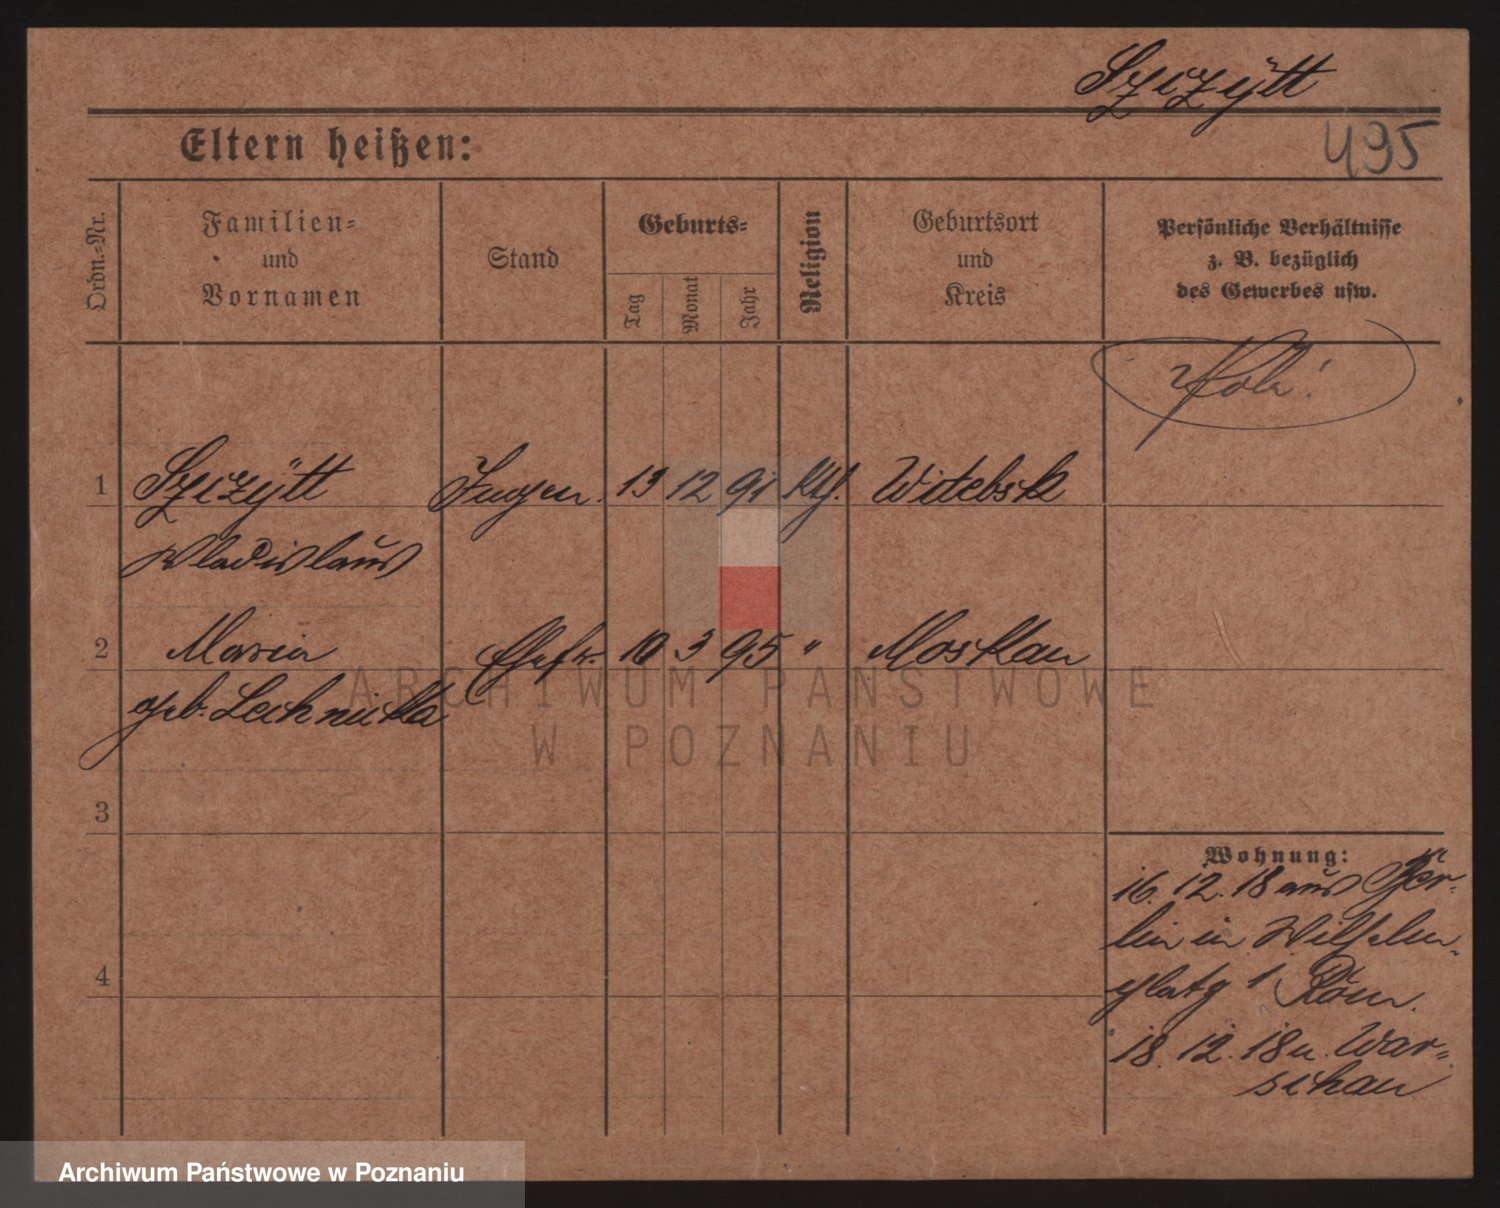 Szczytt
Eltern heißen:
495
Ordn.-Nr.
Familien=
und
Vornamen
Stand
Geburts=
Tag
Monat
Jahr
Religion
Geburtsort
und
Kreis
Persönliche Verhältnisse
z. B. bezüglich
des Gewerbes usw.
1
Szczytt
13 12 91
Kth.
Witebsk
Wladislaus
2
Maria
Ehefr.
10 3 95
"
Moskau
geb. Lechnicka
ARCHIWUM PAŃSTWOWE
W POZNANIU
3
4
Wohnung:
16.12.18 aus Ber-
lin in Wilhelm-
platz 1 Röm.
18.12.18 n. War-
schau
Archiwum Państwowe w Poznaniu